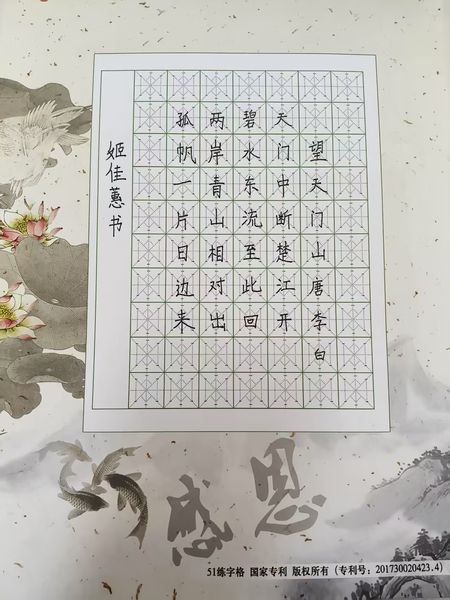 望天门山唐李白
天门中断楚江开
碧水东流至此回
两岸青山相对出
孤帆一片日边来
姬佳蕙书
感恩
51练字格 国家专利 版权所有（专利号：201730020423.4）